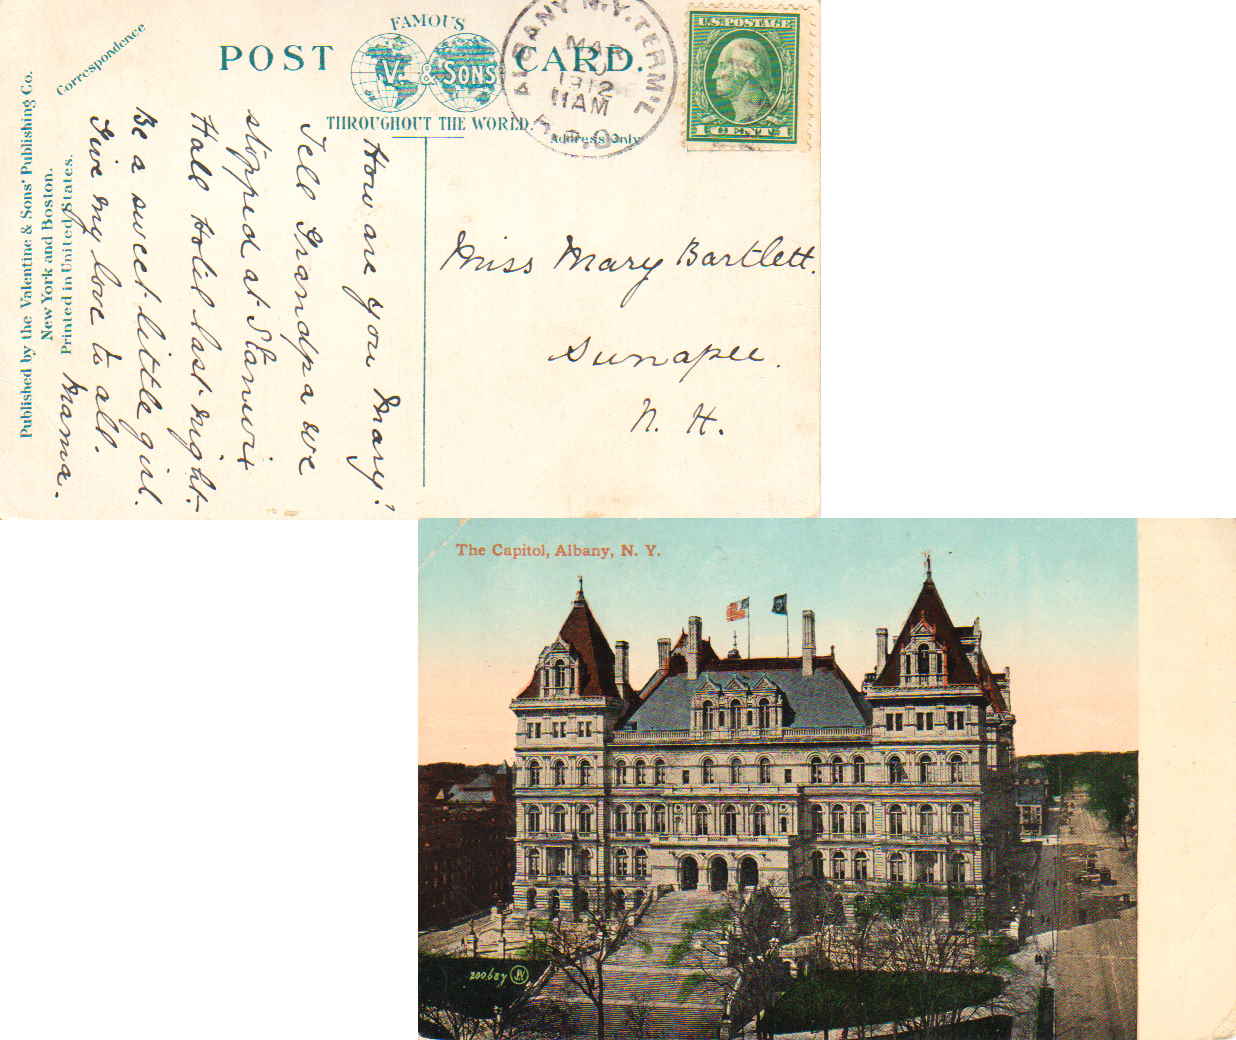 FAMOUS
POST CARD.
V. & SONS
THROUGHOUT THE WORLD.
Correspondence
Address Only
ALBANY N.Y. TERM'L
MAR
20
1912
11 AM
R.P.O.
U.S. POSTAGE
1 CENT 1
Published by the Valentine & Sons' Publishing Co.
New York and Boston.
Printed in United States.
How are you Mary?
Tell Grandpa we
stopped at Stanwix
Hall Hotel last night.
Be a sweet little girl.
Give my love to all.
Mama.
Miss Mary Bartlett.
Sunapee.
N. H.
The Capitol, Albany, N. Y.
200687 JV